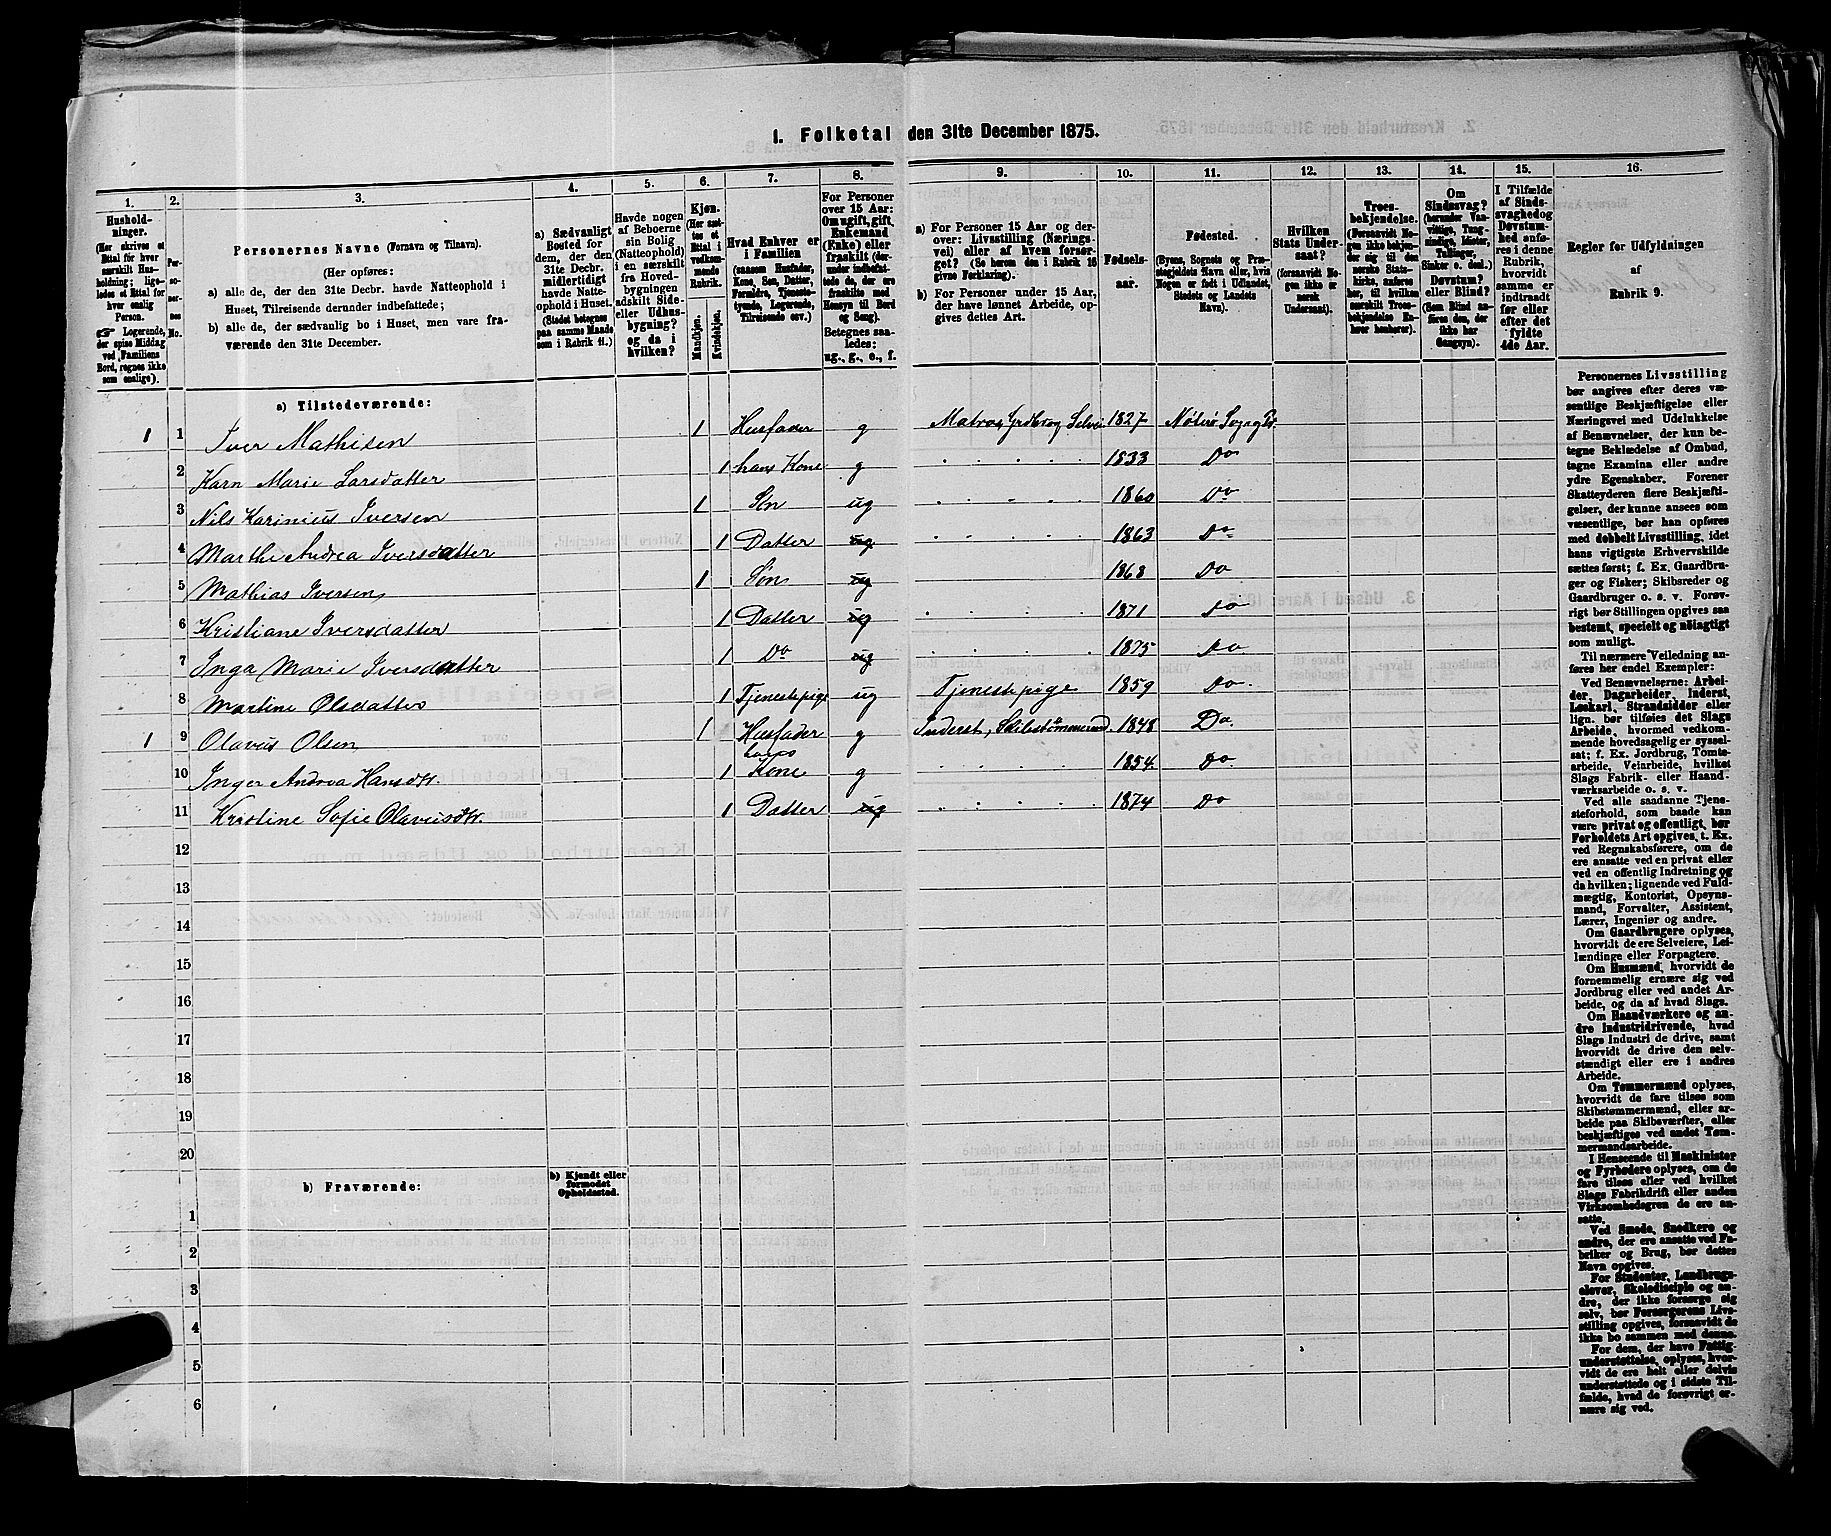 1. Folketal den 31te December 1875.
1. 2. 3. 4. 5. 6. 7. 8. 9. 10. 11. 12. 13. 14. 15. 16.
Hushold-
ninger.
(Her skrives et
Ettal for hver
særskilt Hus-
holdning; lige-
ledes et Ettal for
hver enslig
Person.
☞ Logerende,
der spise Middag
ved Familiens
Bord, regnes ikke
som enslige).
Per-
so-
ner-
nes
No.
Personernes Navne (Fornavn og Tilnavn).
(Her opføres:
a) alle de, der den 31te Decbr. havde Natteophold i
Huset, Tilreisende derunder indbefattede;
b) alle de, der sædvanlig bo i Huset, men vare fra-
værende den 31te December.
a) Sædvanligt
Bosted for
dem, der den
31te Decbr.
midlertidigt
havde Natte-
ophold i Huset.
(Stedet betegnes
paa samme Maade
som i Rubrik 11.)
Havde nogen
af Beboerne
sin Bolig
(Natteophold)
i en særskilt
fra Hoved-
bygningen
adskilt Side-
eller Udhus-
bygning?
og da i
hvilken?
Kjøn.
(Her sæt-
tes et
Ettal i
vedkom-
mende
Rubrik.
Mandkjøn.
Kvindekjøn.
Hvad Enhver er
i Familien
(saasom Husfader,
Kone, Søn, Datter,
Forældre, Tjeneste-
tyende, Logerende,
Tilreisende osv.)
For Personer
over 15 Aar:
Om ugift, gift,
Enkemand
(Enke) eller
fraskilt (der-
under indbefat-
tede de, der ere
fraskilte med
Hensyn til Bord
og Seng).
Betegnes saa-
ledes:
ug., g., e., f.
a) For Personer 15 Aar og der-
over: Livsstilling (Nærings-
vei) eller af hvem forsør-
get? (Se herom den i Rubrik 16
givne Forklaring).
b) For Personer under 15 Aar,
der have lønnet Arbeide, op-
gives dettes Art.
Fødsels-
aar.
Fødested.
(Byens, Sognets og Præ-
stegjeldets Navn eller, hvis
Nogen er født i Udlandet,
Stedets og Landets
Navn).
Hvilken
Stats Under-
saat?
(forsaavidt No-
gen ikke er
norsk
Undersaat).
Troes-
bekjendelse.
(Forsaavidt No-
gen ikke bekjen-
der sig til den
norske Stats-
kirke, anføres
her, til hvilken
særskilt Troes-
bekjendelse En-
hver henhører).
Om
Sindssvag?
(herunder Van-
vittige, Tung-
sindige, Idioter,
Tullinger,
Sinker o. desl.)
Døvstum?
eller Blind?
(Som Blind an-
føres den, der
ikke har
Gangsyn).
I Tilfælde
af Sinds-
svaghed og
Døvstum-
hed anfø-
res i denne
Rubrik,
hvorvidt
samme er
indtraadt
før eller
efter det
fyldte
4de Aar.
Regler for Udfyldningen
af
Rubrik 9.
a) Tilstedeværende:
1 1 Iver Mathisen 1 Husfader g Matros, Jrdbrog Selvei 1827 Nøterø Sogn
2 Karn Marie Larsdatter 1 hans Kone g 1833 Do
3 Nils Karinius Iversen 1 Søn ug 1860 Do
4 Marthe Andrea Iversdatter 1 Datter ug 1863 Do
5 Mathias Iversen 1 Søn ug 1868 Do
6 Kristiane Iversdatter 1 Datter ug 1871 Do
7 Inga Marie Iversdatter 1 Do ug 1875 Do
8 Martine Olsdatter 1 Tjenestepige ug Tjenestepige 1859 Do
1 9 Olavus Olsen 1 Husfader g Inderst, Skibstømmermd. 1848 Do
10 Inger Andrea Hansdtr. 1 hans Kone g 1854 Do
11 Kristine Sofie Olavusdtr. 1 Datter ug 1874 Do
12
13
14
15
16
17
18
19
20
b) Fraværende:
b) Kjendt eller
formodet
Opholdssted.
1
2
3
4
5
6
Personernes Livsstilling
bør angives efter deres væ-
sentlige Beskjæftigelse eller
Næringsvei med Udelukkelse
af Benævnelser, der kun be-
tegne Beklædelse af Ombud,
tagne Examina eller andre
ydre Egenskaber. Forener
Skatteyderen flere Beskjæfti-
gelser, der kunne ansees som
væsentlige, bør han opføres
med dobbelt Livsstilling, idet
hans vigtigste Erhvervskilde
sættes først; f. Ex. Gaardbru-
ger og Fisker; Skibsreder og
Gaardbruger o. s. v. Forøv-
rigt bør Stillingen opgives saa
bestemt, specielt og nøiagtigt
som muligt.
Til nærmere Veiledning an-
føres her endel Exempler:
Ved Benævnelserne: Arbei-
der, Dagarbeider, Inderst,
Løskarl, Strandsidder eller
lign. bør tilføies det Slags
Arbeide, hvormed vedkom-
mende hovedsagelig er syssel-
sat; f. Ex. Jordbrug, Tomte-
arbeide, Veiarbeide, hvilket
Slags Fabrik- eller Haand-
værksarbeide o. s. v.
Ved alle saadanne Tjene-
steforhold, som baade kan
være privat og offentligt, bør
Forholdets Art opgives, t. Ex.
ved Regnskabsførere, om de
ere ansatte ved en privat eller
ved en offentlig Indretning og
da hvilken; lignende ved Fuld-
mægtig, Kontorist, Opsyns-
mand, Forvalter, Assistent,
Lærer, Ingeniør og andre.
Om Gaardbrugere oplyses,
hvorvidt de ere Selveiere, Lei-
lændinge eller Forpagtere.
Om Husmænd, hvorvidt de
fornemmelig ernære sig ved
Jordbrug eller ved andet Ar-
beide, og da af hvad Slags.
Om Haandværkere og an-
dre Industridrivende, hvad
Slags Industri de drive, samt
hvorvidt de drive den selv-
stændigt eller ere i andres
Arbeide.
Om Tømmermænd oplyses,
hvorvidt de fare tilsøs som
Skibstømmermænd, eller ar-
beide paa Skibsværfter, eller
beskjæftiges ved andet Tøm-
mermandsarbeide.
I Henseende til Maskinister
og Fyrbødere oplyses, om de
fare tilsøs eller ved hvilket
Slags Fabrikdrift eller anden
Virksomhedsgren de ere an-
satte.
Ved Smede, Snedkere og
andre, der ere ansatte ved Fa-
briker og Brug, bør dettes
Navn opgives.
For Studenter, Landbrugs-
elever, Skoledisciple og an-
dre, der ikke forsørge sig
selv, bør Forsørgerens Livs-
stilling opgives, forsaavidt de
ikke bo sammen med denne.
For dem, der have Fattig-
understøttelse, oplyses, hvor-
vidt de ere helt eller delvis
understøttede og i sidste Til-
fælde, hvad de forøvrigt er-
nære sig ved.